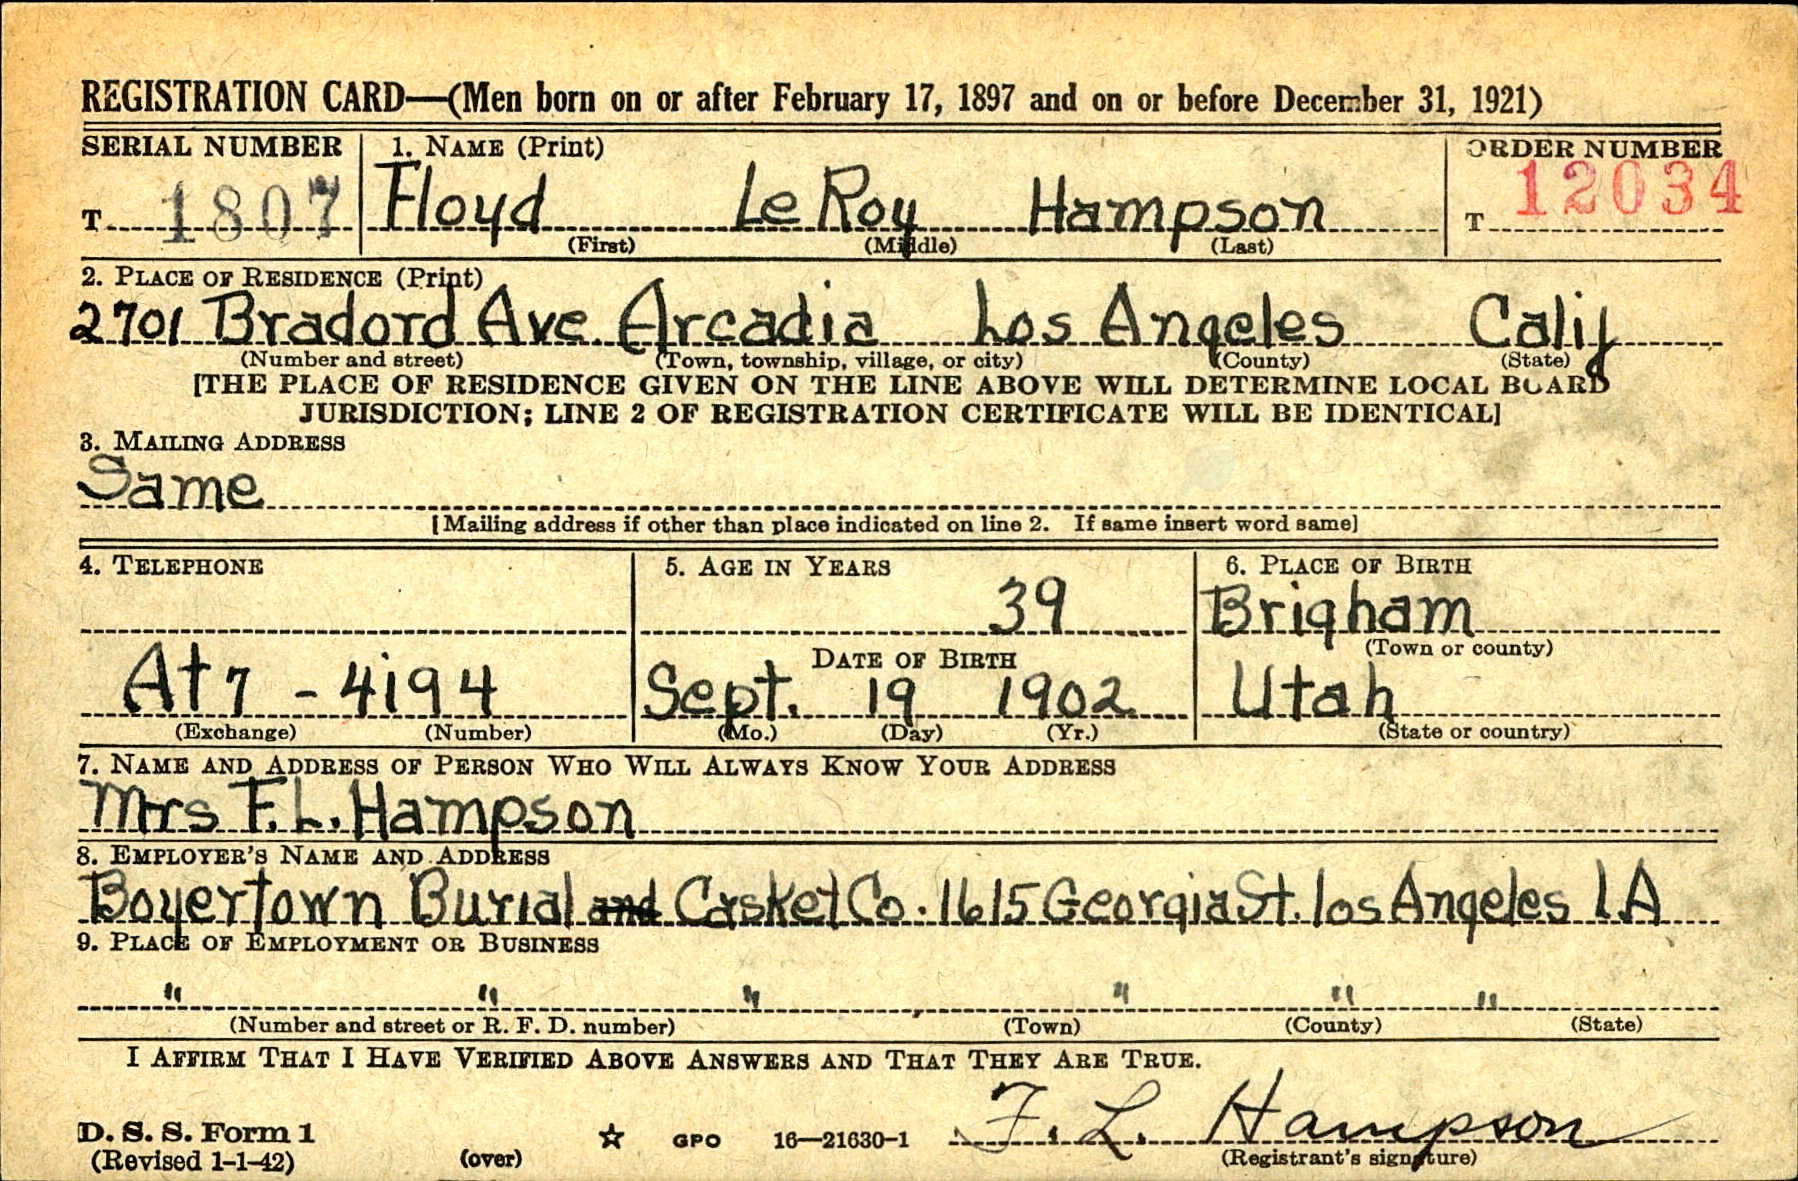 REGISTRATION CARD—(Men born on or after February 17, 1897 and on or before December 31, 1921)
SERIAL NUMBER 1. NAME (Print) ORDER NUMBER
T 1807 Floyd Le Roy Hampson T 12034
(First) (Middle) (Last)
2. PLACE OF RESIDENCE (Print)
2701 Bradord Ave. Arcadia Los Angeles Calif
(Number and street) (Town, township, village, or city) (County) (State)
[THE PLACE OF RESIDENCE GIVEN ON THE LINE ABOVE WILL DETERMINE LOCAL BOARD
JURISDICTION; LINE 2 OF REGISTRATION CERTIFICATE WILL BE IDENTICAL]
3. MAILING ADDRESS
Same
[Mailing address if other than place indicated on line 2. If same insert word same]
4. TELEPHONE 5. AGE IN YEARS 6. PLACE OF BIRTH
39 Brigham
DATE OF BIRTH (Town or county)
At 7 - 4194 Sept. 19 1902 Utah
(Exchange) (Number) (Mo.) (Day) (Yr.) (State or country)
7. NAME AND ADDRESS OF PERSON WHO WILL ALWAYS KNOW YOUR ADDRESS
Mrs F. L. Hampson
8. EMPLOYER'S NAME AND ADDRESS
Boyertown Burial and Casket Co. 1615 Georgia St. los Angeles LA
9. PLACE OF EMPLOYMENT OR BUSINESS
" " " " " "
(Number and street or R. F. D. number) (Town) (County) (State)
I AFFIRM THAT I HAVE VERIFIED ABOVE ANSWERS AND THAT THEY ARE TRUE.
D. S. S. Form 1 GPO 16—21630-1 F. L. Hampson
(Revised 1-1-42) (over) (Registrant's signature)